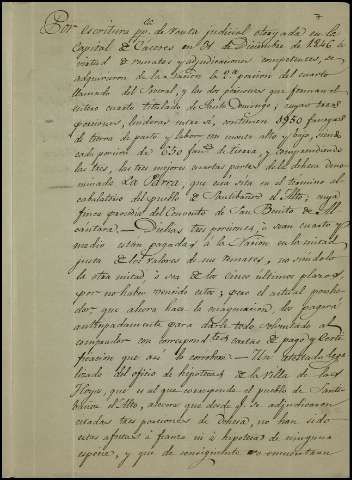 Por escritura pp.ca de venta judicial otorgada en la
Capital de Cáceres en 31 de Diciembre de 1846 á
virtud de remates y adjudicaciones competentes, se
adquirieron de la Nación la 2ª porcion del cuarto
llamado del Parral, y las dos porciones que forman el
otro cuarto titulado de Santo Domingo; cuyas tres
porciones, linderas entre sí, contienen 1950 fanegas
de tierra de pasto y labor con monte alto y bajo, siendo
cada porcion de 650 fan.s de tierra, y comprendiendo
las tres, las tres mejores cuartas partes de la dehesa deno
minada La Parra, que está sita en el término al
cabalatorio del pueblo de Santibañez el Alto; cuya
finca procedió del Convento de San Benito de Al
cantara. — Dichas tres porciones, ó sean cuarto y
medio están pagadas á la Nacion en la mitad
justa de los valores de sus remates, no siéndolo
la otra mitad, ó sea de los cinco últimos plazos,
por no haber vencido estos; pero el actual posehe
dor que ahora hace la enagenacion, los pagará
anticipadamente para darlo todo solventado al
comprador con correspond.tes cartas de pago y certi
ficacion que así lo corrobore. — Un testimonio lega
lizado del oficio de hipotecas de la Villa de las
Hoyos, que es al que corresponde el pueblo de Santi
bañez el Alto, asevera que desde q. se adjudicaron
citadas tres porciones de dehesa, no han sido
estas afectas á fianza ni á hipoteca de ninguna
especie, y que de consiguiente se encuentran